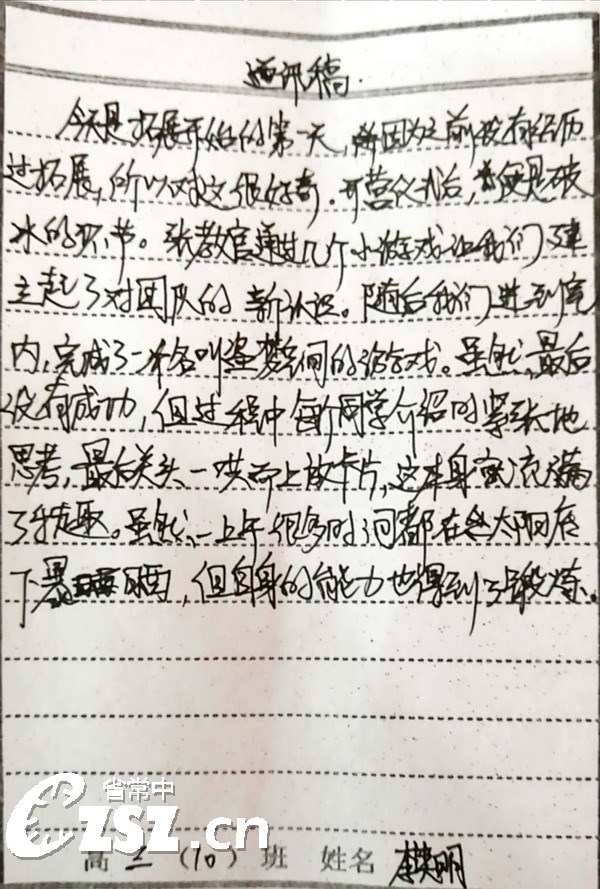 通讯稿
今天是拓展开始的第一天,因为之前没有经历
过拓展,所以对这很好奇。开营仪式后,便是破
冰的环节。张教官通过几个小游戏让我们建
立起了对团队的新认识。随后我们进到室
内,完成了一个名叫盗梦空间的游戏。虽然最后
没有成功,但过程中每个同学介绍时紧张地
思考,最后关头一哄而上放卡片,这本身就充满
了乐趣。虽然一上午很多时间都在太阳底
下暴晒,但自身的能力也得到了锻炼。
省常中
CZSZ.cn
高 (10) 班 姓名